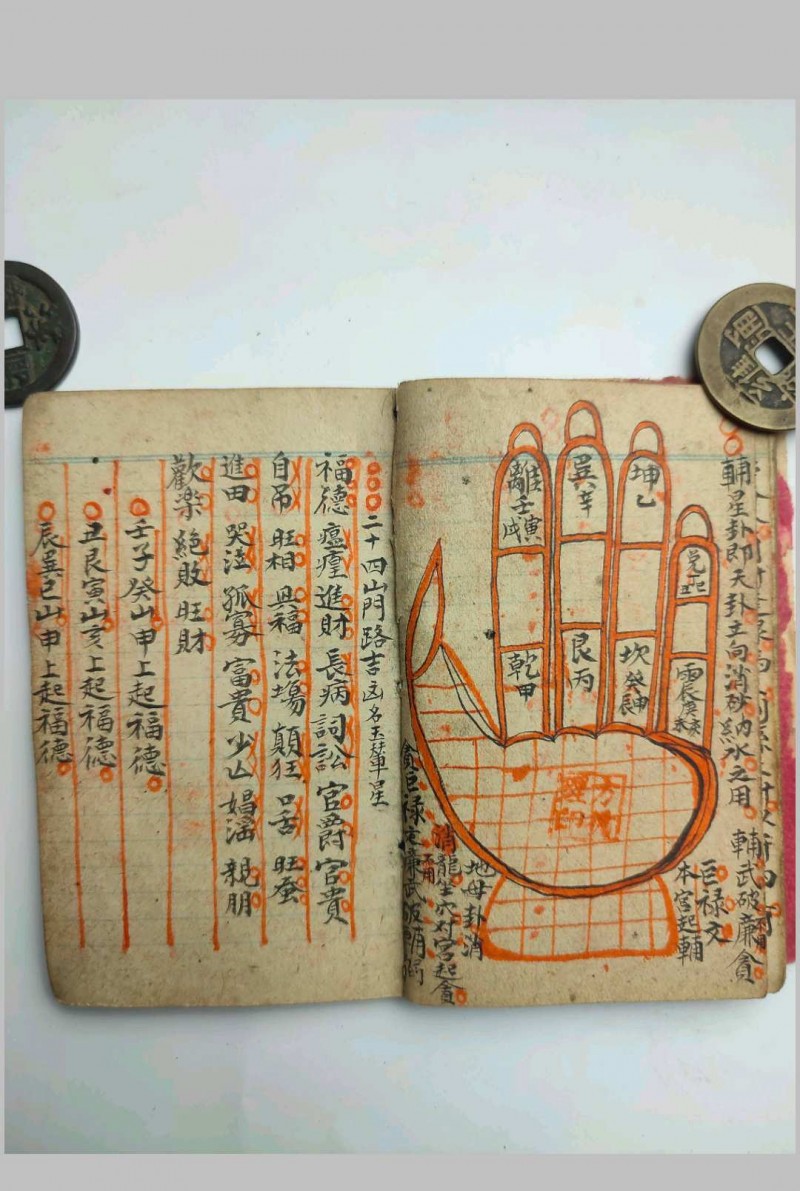 輔星卦即天卦立向消砂納水之用
輔武破廉貪
巨祿文
本宮起輔
坤乙
巽辛
離壬寅戌
坎癸申辰
艮丙
乾甲
地母卦消
消龍坐穴对宮起貪
貪巨祿文廉武破輔弼
二十四山門路吉凶名玉輦車星
福德 瘟㾮 進財 長病 詞訟 官爵 官貴
自吊 旺相 興福 法場 顛狂 口舌 旺蚕
進田 哭泣 孤寡 富貴 少亡 娼淫 親朋
歡樂 絕敗 旺財
壬子癸山申上起福德
丑艮寅山亥上起福德
辰巽巳山申上起福德